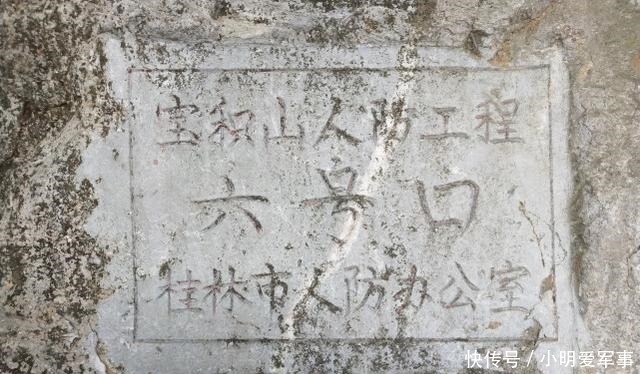 宝积山人防工程
六号口
桂林市人防办公室
快传号/小明爱军事